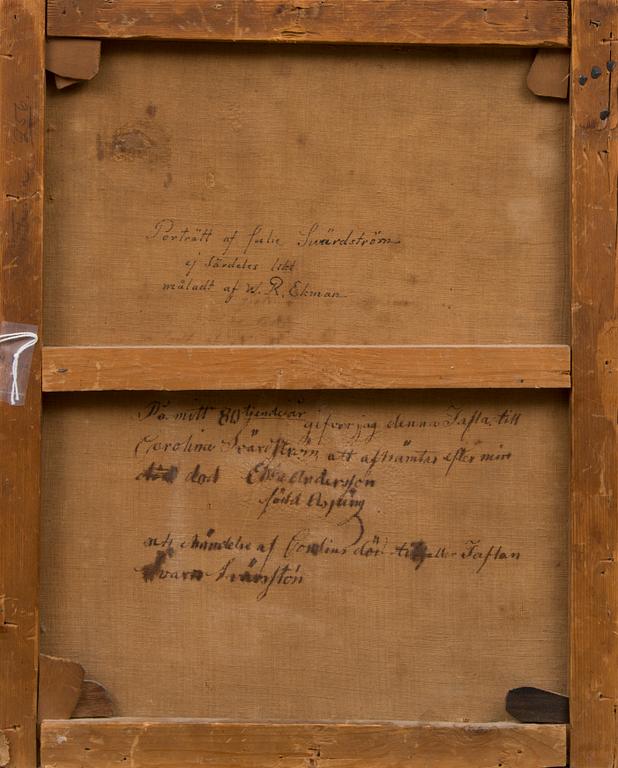 Porträtt af Julie Svärdström
ej särdeles likt
måladt af W. R. Ekman
På mitt 80 tjendeår gifver jag denna Tafla till
Carolina Svärdström att afhämtas efter min
död Elise Andersson
född Asping
att händelse af död tillfaller Taflan